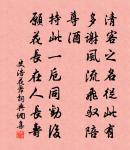 清客之名從此有
多謝風流飛馭陪
尊酒
持此一卮同勸後
願花長在人長壽
史浩花舞